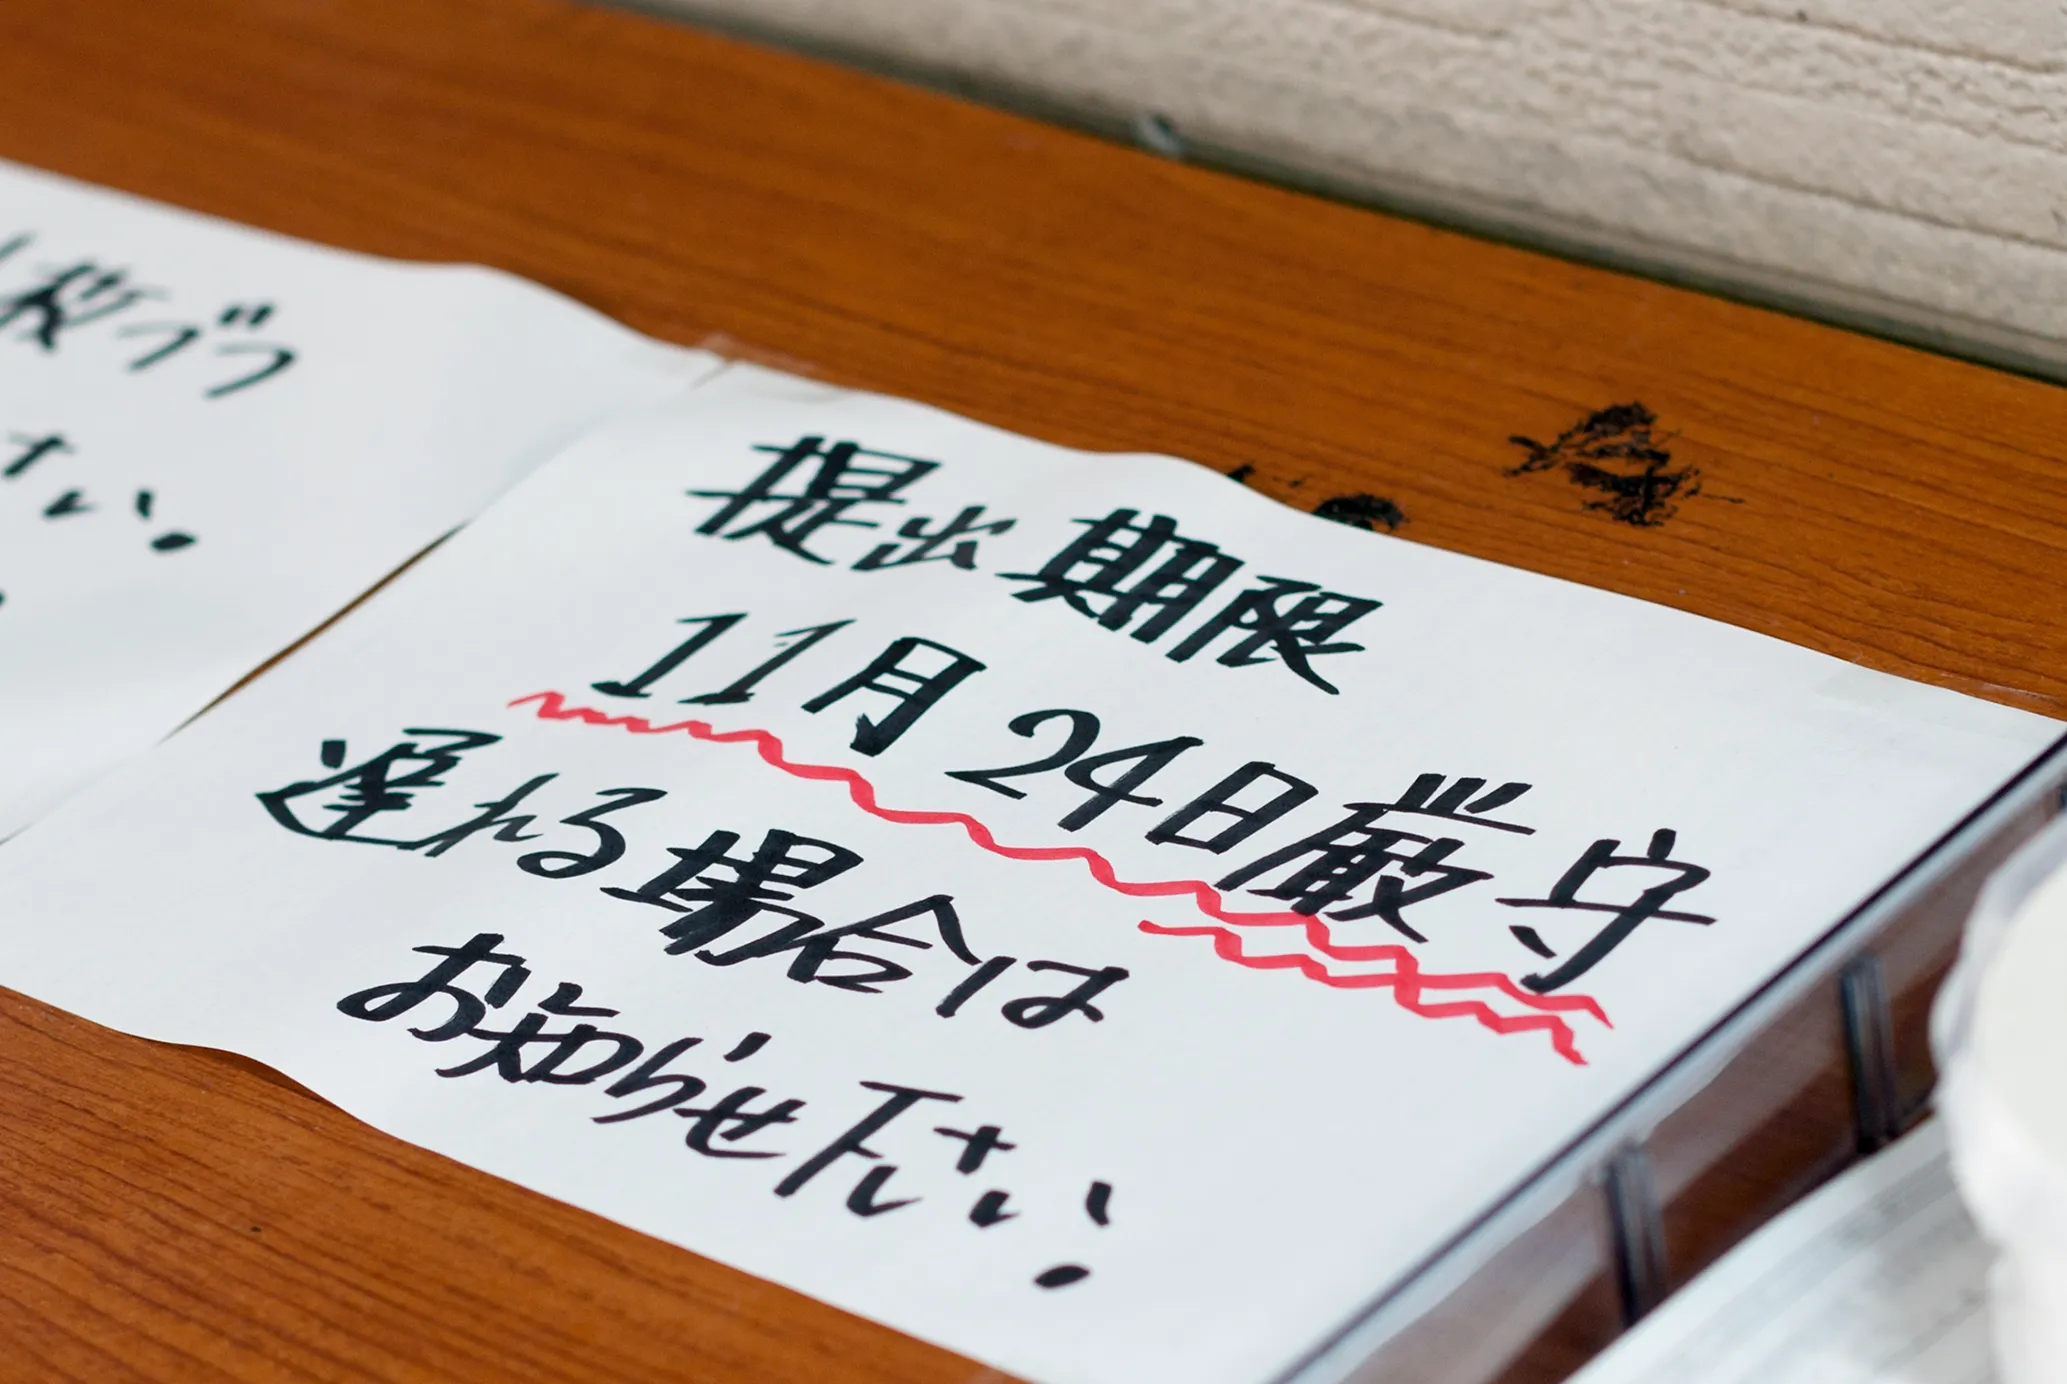 枚づつ
さい。
提出期限
11月24日厳守
遅れる場合は
お知らせ下さい。